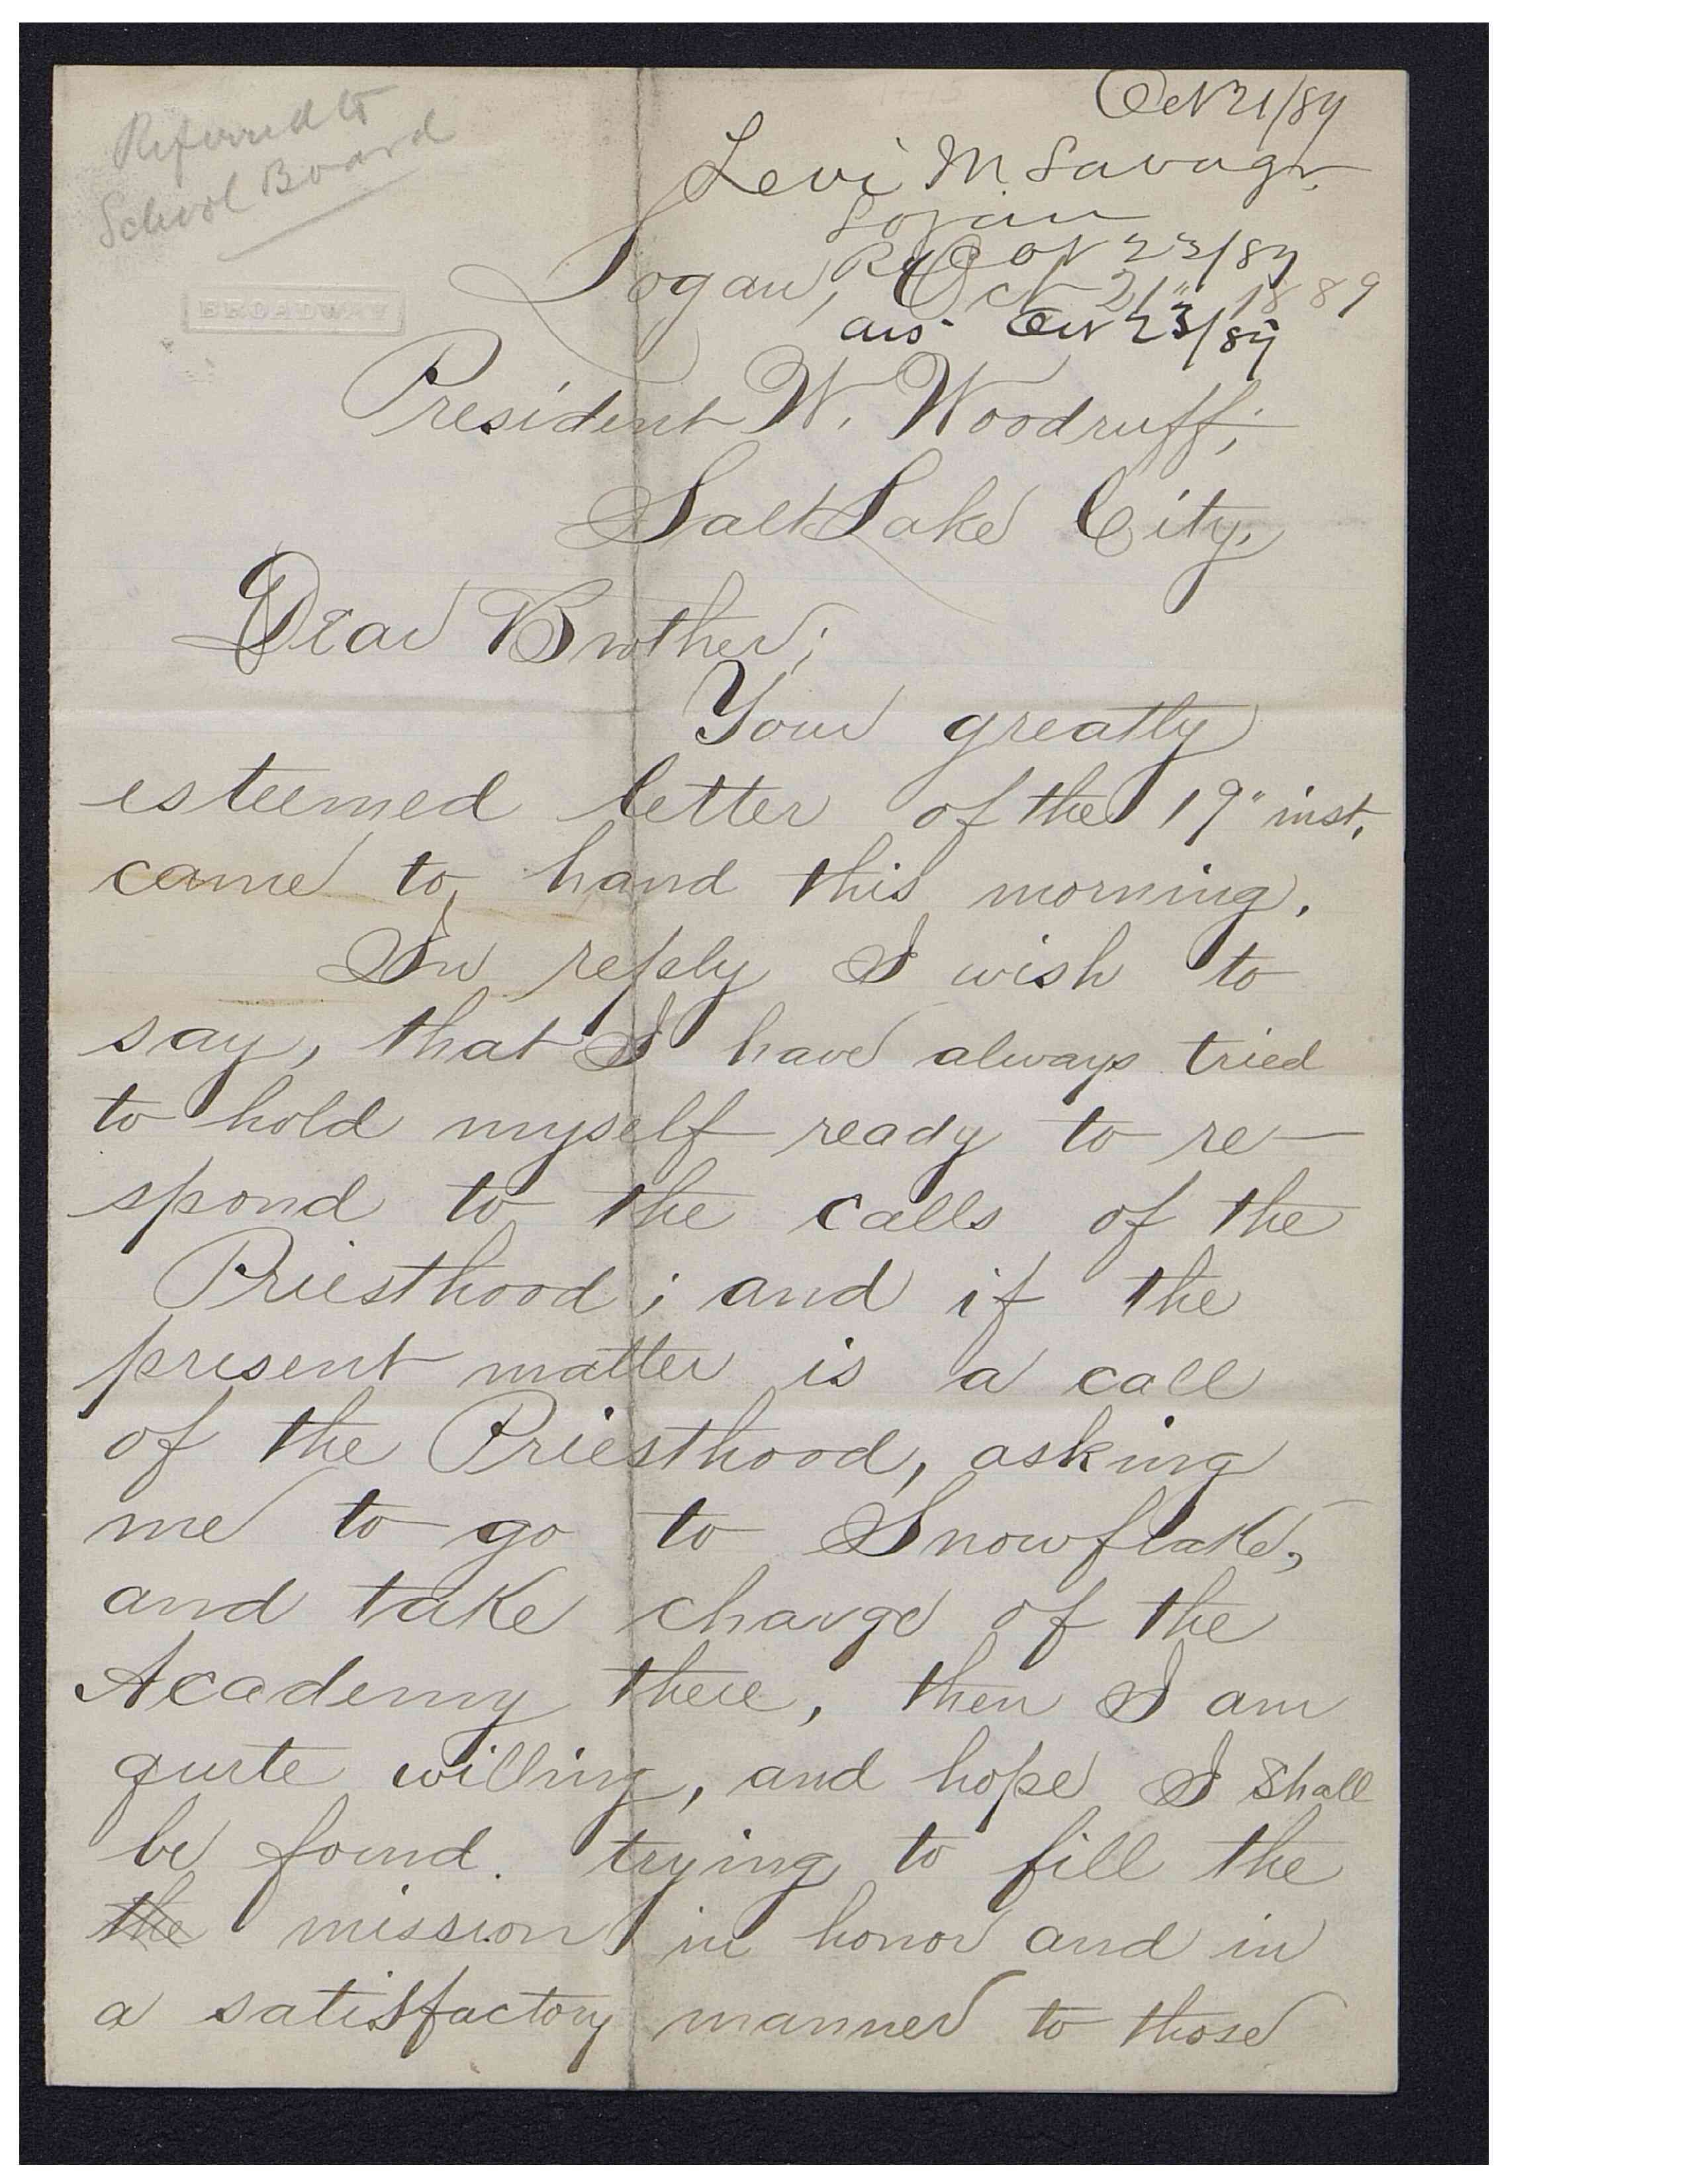 Referred to
School Board
Oct 21/89
Levi M. Savage
Logan
Rec Oct 23/89
Logan, Oct 21" 1889
ans Oct 23/89
BROADWAY
President W. Woodruff;
Salt Lake City,
Dear Brother;
Your greatly
esteemed letter of the 19" inst.
came to hand this morning.
In reply I wish to
say, that I have always tried
to hold myself ready to re-
spond to the calls of the
Priesthood; and if the
present matter is a call
of the Priesthood, asking
me to go to Snowflake,
and take charge of the
Academy there, then I am
quite willing, and hope I shall
be found. trying to fill the
the mission in honor and in
a satisfactory manner to those